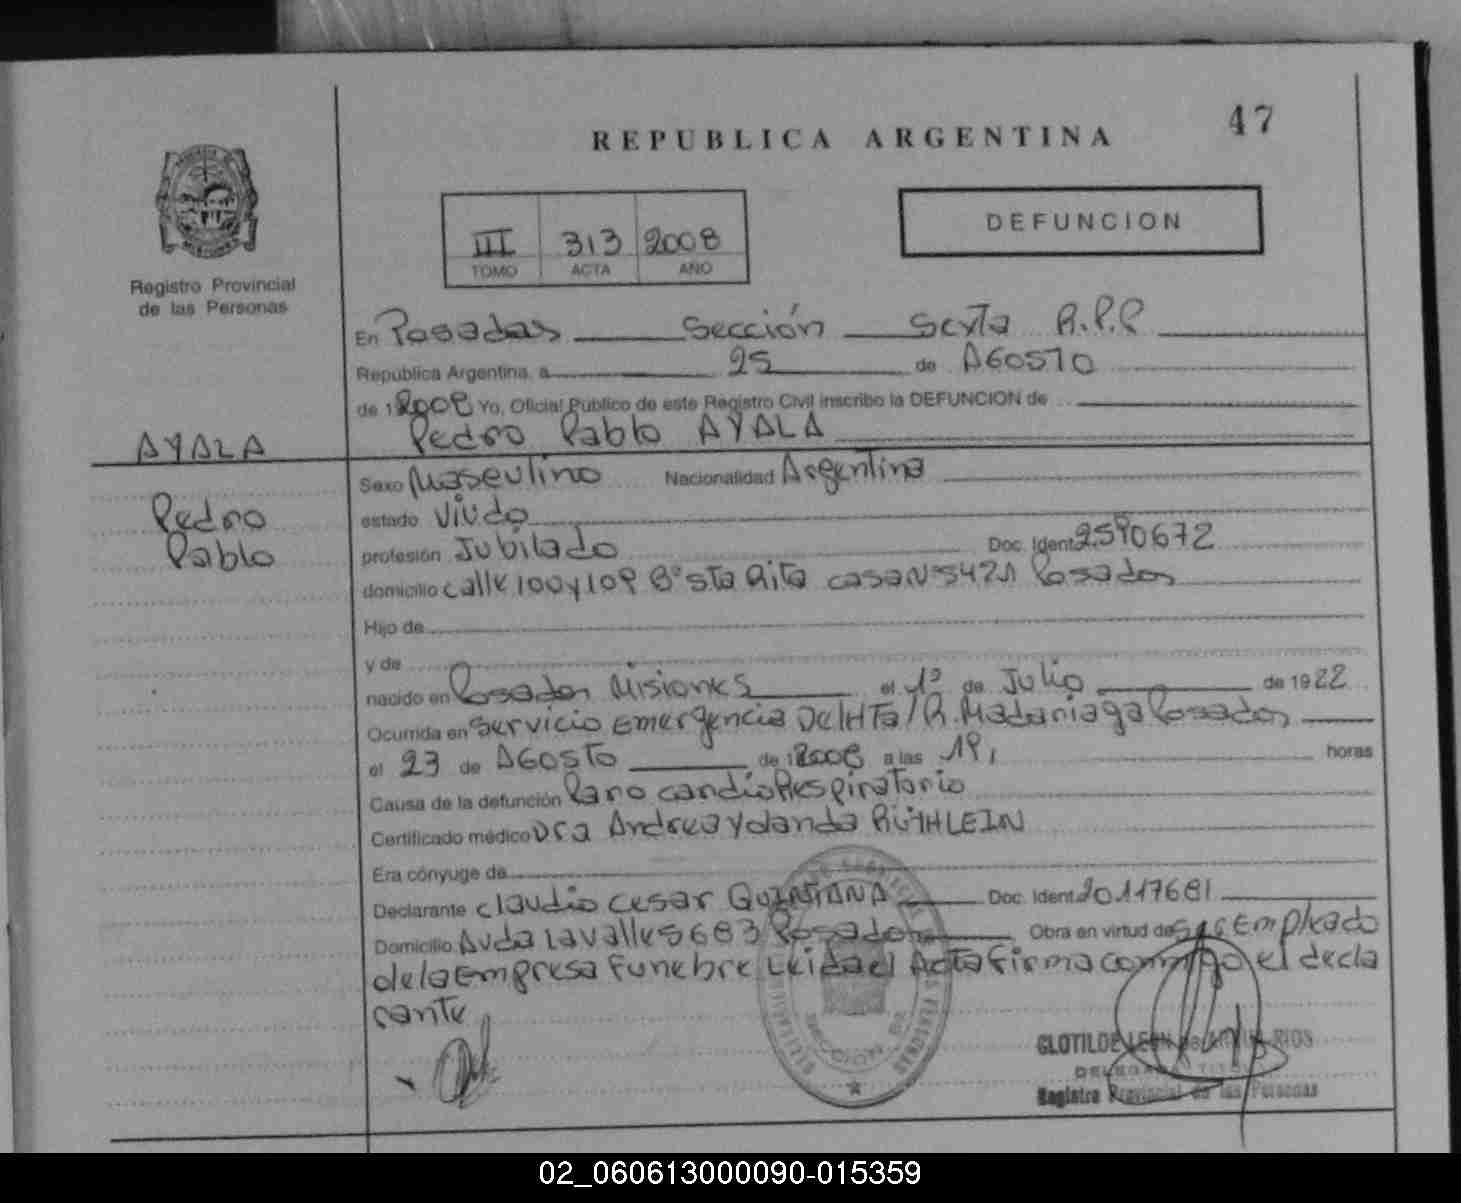 47
REPUBLICA ARGENTINA
III 313 2008
TOMO ACTA AÑO
DEFUNCION
Registro Provincial
de las Personas
En Posadas Sección Sexta R.P.P
Republica Argentina, a 25 de AGOSTO
de 2008 Yo, Oficial Público de este Registro Civil inscribo la DEFUNCION de
Pedro Pablo AYALA
AYALA
Pedro
Pablo
Sexo Masculino Nacionalidad Argentina
estado Viudo
profesión Jubilado Doc. Ident. 2590672
domicilio calle 100 y 109 Bº Sta Rita casa Nº 5421 Posadas
Hijo de
y de
nacido en Posadas Misiones el 1º de Julio de 1922
Ocurrida en Servicio Emergencia Del HTal R. Madariaga Posadas
el 23 de AGOSTO de 2008 a las 19, horas
Causa de la defunción Paro cardio Respiratorio
Certificado médico Dra Andrea Yolanda RÜTHLEIN
Era cónyuge de
Declarante Claudio Cesar QUINTANA Doc. Ident. 20117681
Domicilio Avda Lavalle 5683 Posadas Obra en virtud de ser Empleado
de la Empresa Funebre Leida el Acta Firma conmigo el decla
rante
CLOTILDE LEON de RIOS
Registro Provincial de las Personas
02_060613000090-015359